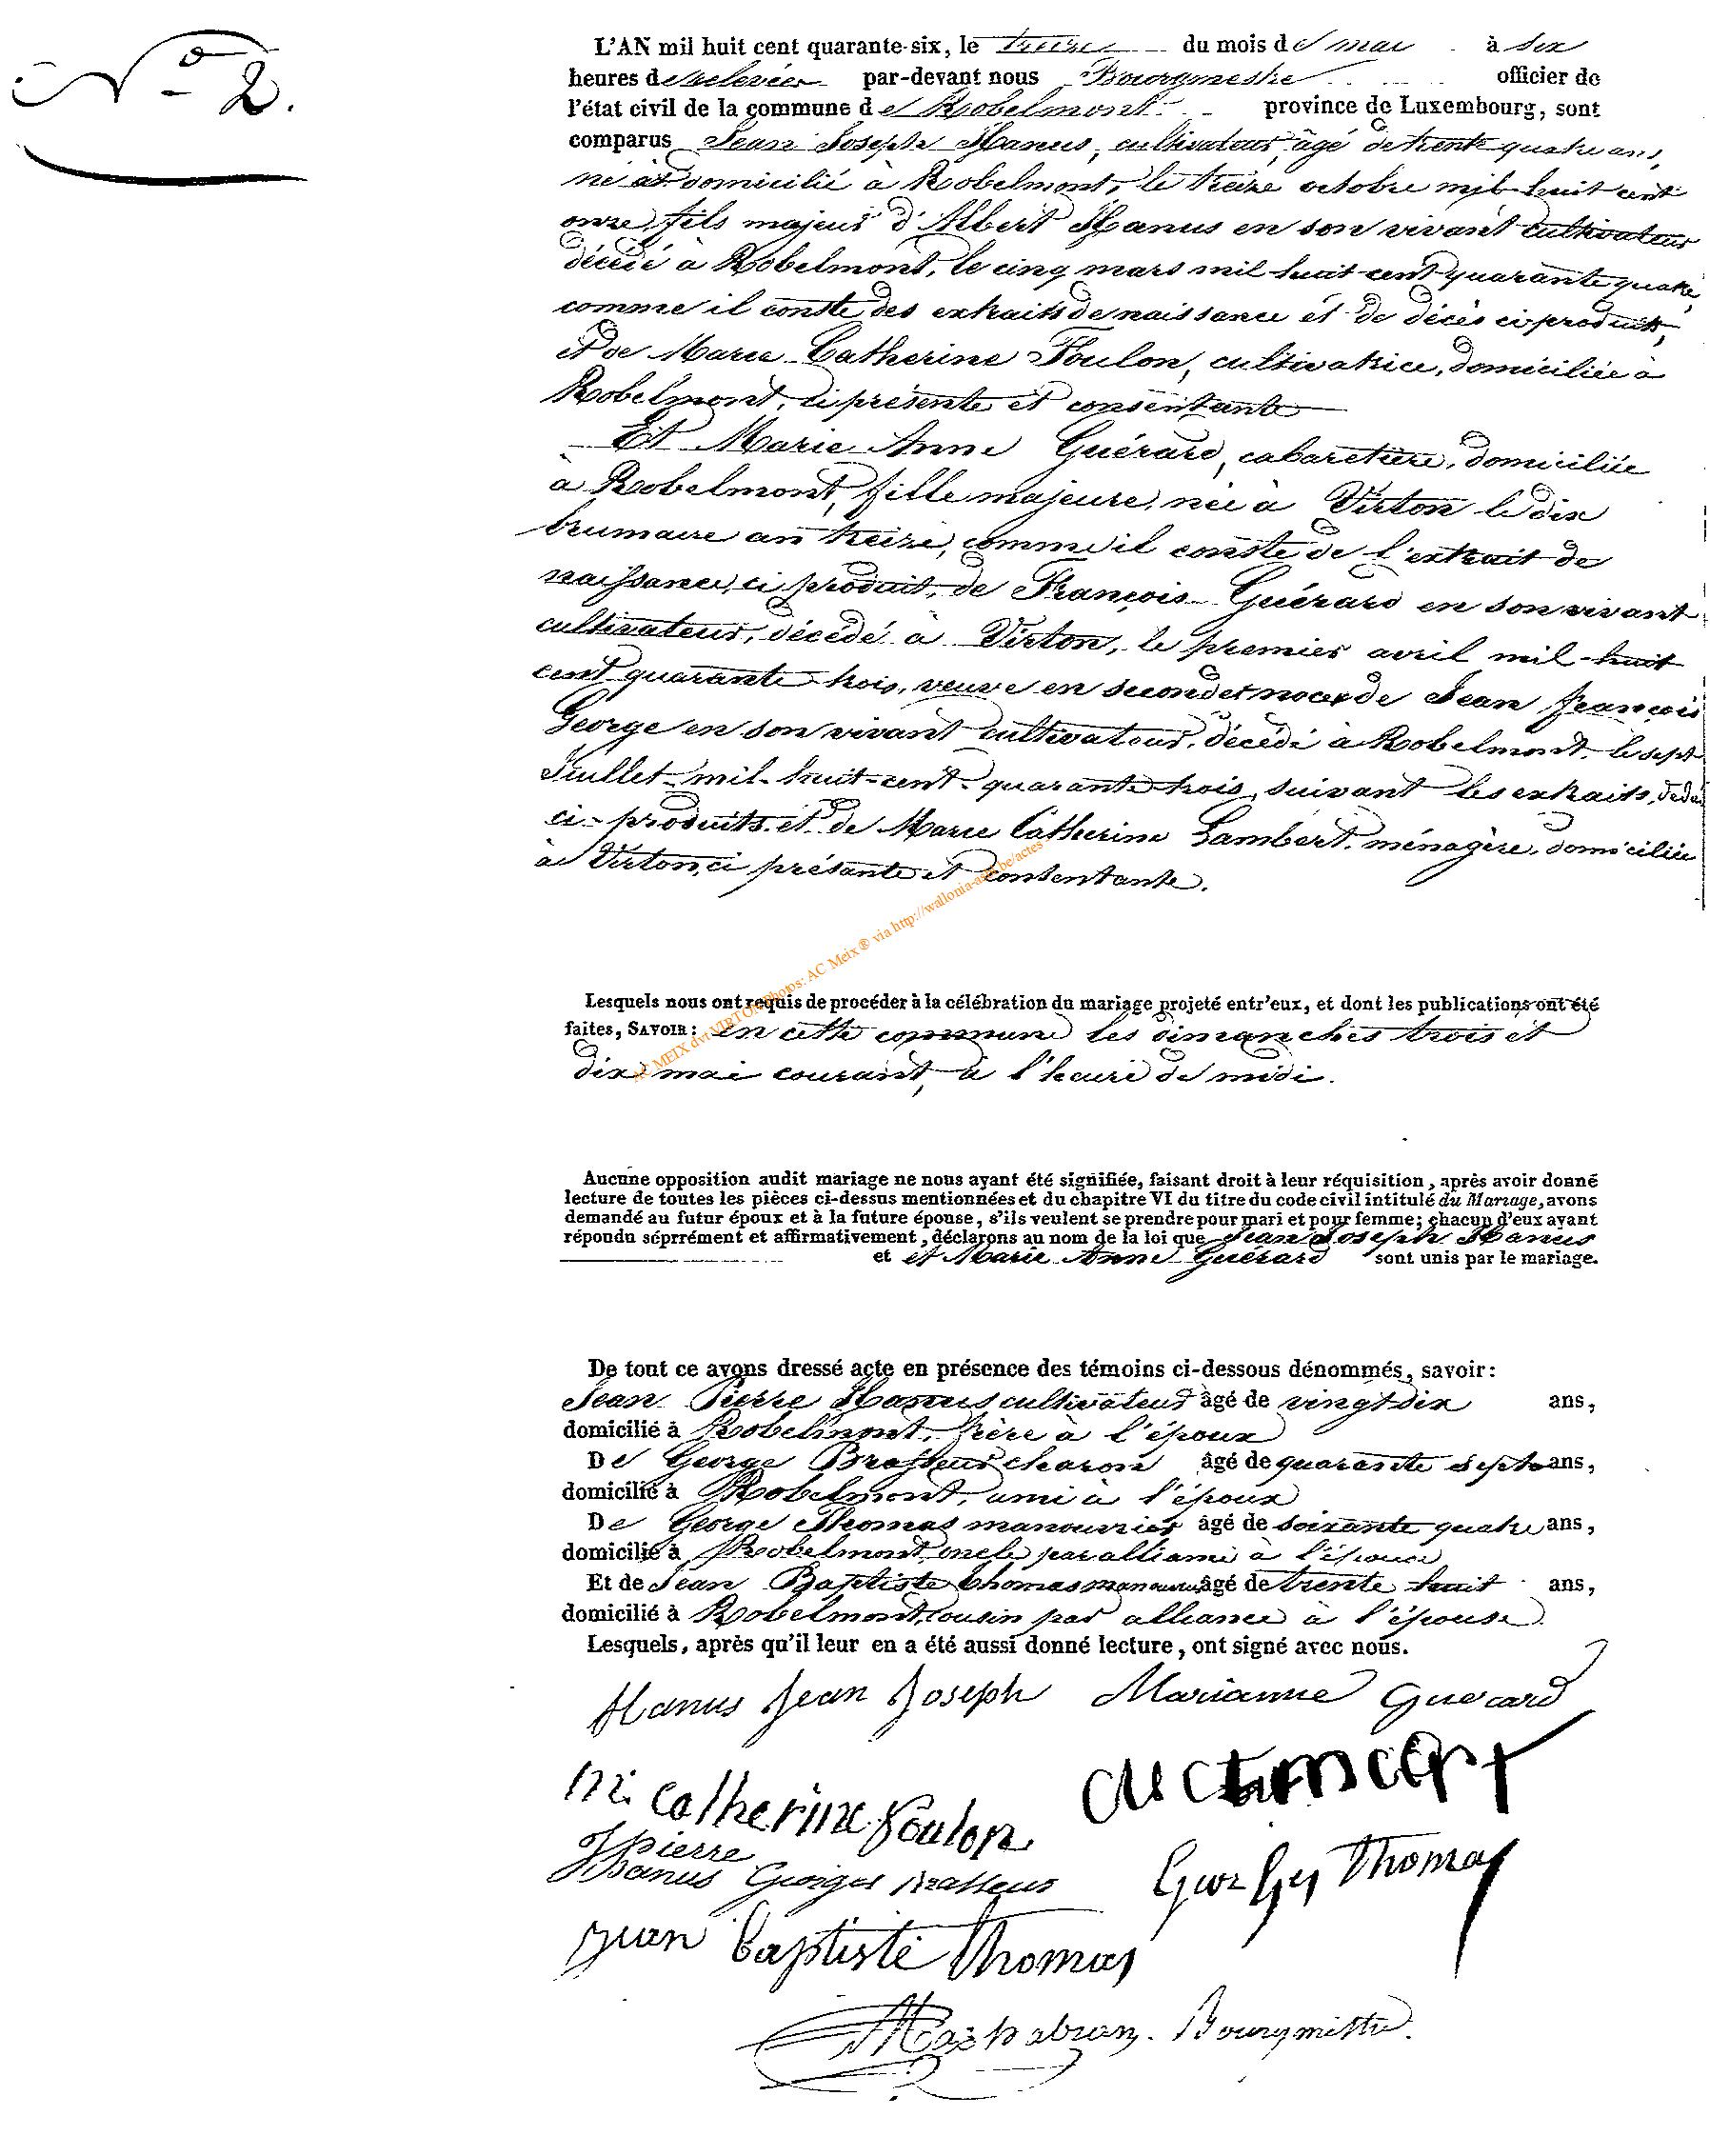 N° 2.
L'AN mil huit cent quarante-six, le treize du mois de mai à six
heures de relevée par-devant nous Bourgmestre officier de
l'état civil de la commune de Robelmont province de Luxembourg, sont
comparus Jean Joseph Hanus, cultivateur, âgé de trente quatre ans,
né et domicilié à Robelmont, le treize octobre mil huit cent
onze, fils majeur d'Albert Hanus en son vivant cultivateur
décédé à Robelmont, le cinq mars mil huit cent quarante quatre,
comme il conste des extraits de naissance et de décès ci produits,
et de Marie Catherine Foulon, cultivatrice, domiciliée à
Robelmont, ci présente et consentante
Et Marie Anne Guérard, cabaretière, domiciliée
à Robelmont, fille majeure, née à Virton le dix
brumaire an treize, comme il conste de l'extrait de
naissance, ci produit, de François Guérard en son vivant
cultivateur, décédé à Virton, le premier avril mil huit
cent quarante trois, veuve en secondes noces de Jean françois
George en son vivant cultivateur, décédé à Robelmont, le sept
Juillet mil-huit-cent-quarante trois, suivant les extraits,
ci-produits et de Marie Catherine Lambert, ménagère, domiciliée
à Virton, ci présante et consentante.
AC MEIX dvt VIRTON Photos: AC Meix® via http://wallonia-asbl.be/actes
Lesquels nous ont requis de procéder à la célébration du mariage projeté entr'eux, et dont les publications ont été
faites, SAVOIR: en cette commune les dimanches trois et
dix mai courant, à l'heure de midi.
Aucune opposition audit mariage ne nous ayant été signifiée, faisant droit à leur réquisition, après avoir donné
lecture de toutes les pièces ci-dessus mentionnées et du chapitre VI du titre du code civil intitulé du Mariage, avons
demandé au futur époux et à la future épouse, s'ils veulent se prendre pour mari et pour femme; chacun d'eux ayant
répondu séprrément et affirmativement, déclarons au nom de la loi que Jean Joseph Hanus
et et Marie Anne Guérard sont unis par le mariage.
De tout ce avons dressé acte en présence des témoins ci-dessous dénommés, savoir:
Jean Pierre Hanus cultivateur âgé de vingt dix ans,
domicilié à Robelmont, frère à l'époux
De George Brasseur charon âgé de quarante sept ans,
domicilié à Robelmont, ami à l'époux
De George Thomas manouvrier âgé de soixante quatre ans,
domicilié à Robelmont, oncle par alliance à l'épouse
Et de Jean Baptiste thomas manouvrier âgé de trente huit ans,
domicilié à Robelmont, cousin par alliance à l'épouse.
Lesquels, après qu'il leur en a été aussi donné lecture, ont signé avec nous.
Hanus Jean Joseph Marianne Guerard
m. catherine foulon
J pierre
hanus Georges brasseur Georges Thomas
jean baptiste thomas
Bourgmestre.